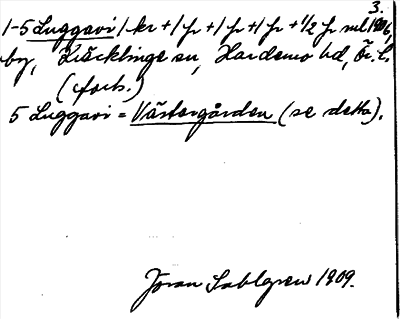 3.
1-5 Luggavi 1 kr + 1 fr + 1 fr + 1 fr + 1/2 fr ml 1906,
by, Kräcklinge sn, Hardemo hd, Ör. L.
(forts.)
5 Luggavi = Västergården (se detta).
Jöran Sahlgren 1909.